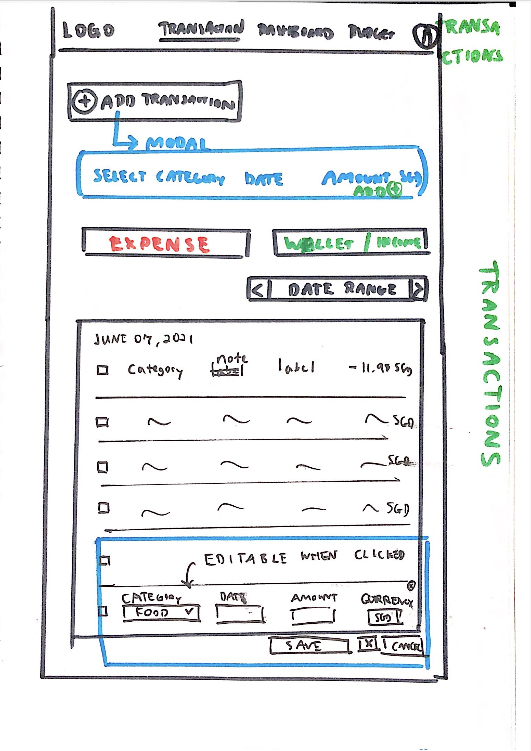 LOGO TRANSACTION DASHBOARD BUDGET
TRANSA
CTIONS
+ ADD TRANSACTION
MODAL
SELECT CATEGORY DATE AMOUNT SGD
ADD +
EXPENSE WALLET / INCOME
< DATE RANGE >
TRANSACTIONS
JUNE 07, 2021
Category note label - 11.98 SGD
label
SGD
SGD
SGD
EDITABLE WHEN CLICKED
CATEGORY DATE AMOUNT CURRENCY
FOOD SGD
SAVE X CANCEL